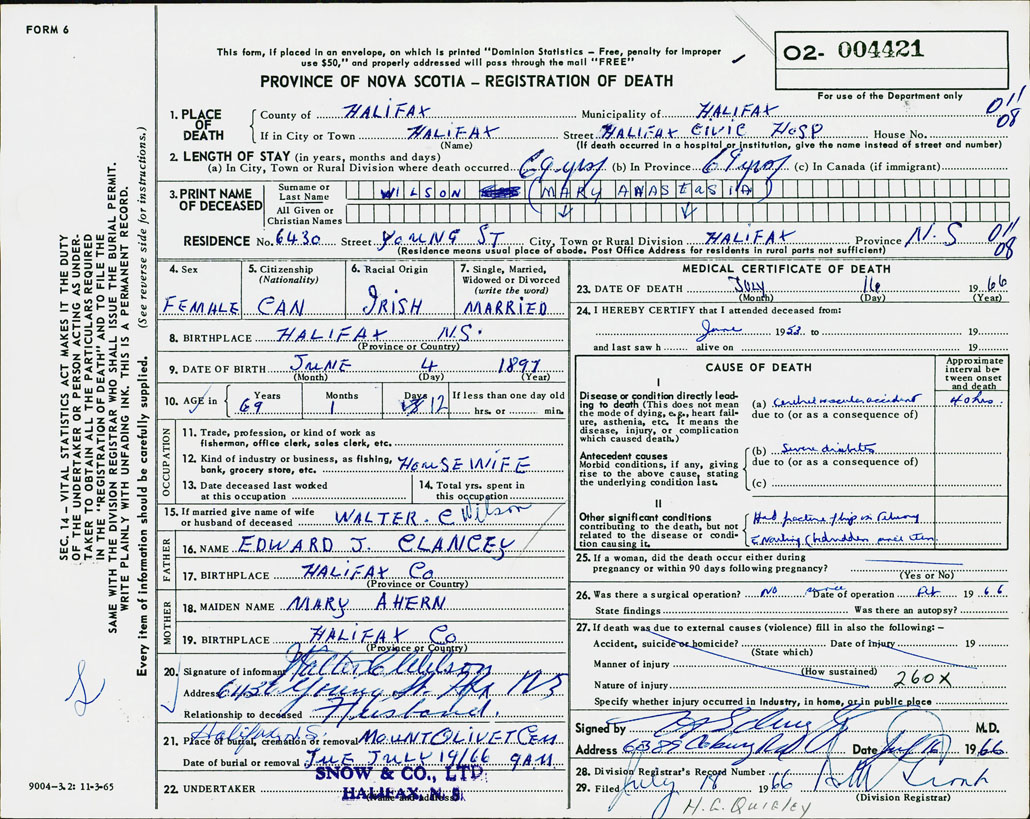 FORM 6
This form, if placed in an envelope, on which is printed "Dominion Statistics – Free, penalty for improper
use $50," and properly addressed will pass through the mail "FREE"
O2- 004421
PROVINCE OF NOVA SCOTIA – REGISTRATION OF DEATH
For use of the Department only
1. PLACE OF DEATH
County of HALIFAX Municipality of HALIFAX 011/08
If in City or Town HALIFAX Street HALIFAX CIVIC HOSP House No.
(Name) (If death occurred in a hospital or institution, give the name instead of street and number)
2. LENGTH OF STAY (in years, months and days)
(a) In City, Town or Rural Division where death occurred 69 yrs (b) In Province 69 yrs (c) In Canada (if immigrant)
3. PRINT NAME OF DECEASED
Surname or Last Name WILSON (MARY ANASTASIA)
All Given or Christian Names
RESIDENCE No. 6430 Street YOUNG ST City, Town or Rural Division HALIFAX Province N.S 011/08
(Residence means usual place of abode. Post Office Address for residents in rural parts not sufficient)
4. Sex FEMALE
5. Citizenship (Nationality) CAN
6. Racial Origin IRISH
7. Single, Married, Widowed or Divorced (write the word) MARRIED
8. BIRTHPLACE HALIFAX N.S.
(Province or Country)
9. DATE OF BIRTH JUNE 4 1897
(Month) (Day) (Year)
10. AGE in Years 69 Months 1 Days 12 If less than one day old
hrs. or min.
OCCUPATION
11. Trade, profession, or kind of work as
fisherman, office clerk, sales clerk, etc.
12. Kind of industry or business, as fishing,
bank, grocery store, etc. HOUSEWIFE
13. Date deceased last worked
at this occupation
14. Total yrs. spent in
this occupation
15. If married give name of wife
or husband of deceased WALTER. C Wilson
FATHER
16. NAME EDWARD J. CLANCEY
17. BIRTHPLACE HALIFAX Co
(Province or Country)
MOTHER
18. MAIDEN NAME MARY AHERN
19. BIRTHPLACE HALIFAX Co
(Province or Country)
20. Signature of informant Walter C Wilson
Address 6430 Young St. Hfx NS
Relationship to deceased Husband.
Halifax N.S.
21. Place of burial, cremation or removal MOUNT OLIVET CEM
Date of burial or removal TUE JULY 19/66 9AM
22. UNDERTAKER SNOW & CO., LTD
HALIFAX, N. S.
(Name and address)
MEDICAL CERTIFICATE OF DEATH
23. DATE OF DEATH July 16 1966
(Month) (Day) (Year)
24. I HEREBY CERTIFY that I attended deceased from:
June 1953 to 19
and last saw h alive on 19
CAUSE OF DEATH
Approximate interval between onset and death
I
Disease or condition directly leading to death (This does not mean
the mode of dying, e.g., heart failure, asthenia, etc. It means the
disease, injury, or complication
which caused death.)
(a) Cerebral vascular accident 40 hrs.
due to (or as a consequence of)
Antecedent causes
Morbid conditions, if any, giving
rise to the above cause, stating
the underlying condition last.
(b) Severe diabetes
due to (or as a consequence of)
(c)
II
Other significant conditions
contributing to the death, but not
related to the disease or condition causing it.
Had fracture of hip in
25. If a woman, did the death occur either during
pregnancy or within 90 days following pregnancy?
(Yes or No)
26. Was there a surgical operation? NO Date of operation 1966
State findings Was there an autopsy?
27. If death was due to external causes (violence) fill in also the following:–
Accident, suicide or homicide? Date of injury 19
(State which)
Manner of injury
(How sustained)
Nature of injury 260X
Specify whether injury occurred in industry, in home, or in public place
Signed by M.D.
Address 6389 Coburg Rd Date July 16 1966
28. Division Registrar's Record Number
29. Filed July 18 1966
(Division Registrar)
H.G. QUIGLEY
SEC. 14 – VITAL STATISTICS ACT MAKES IT THE DUTY
OF THE UNDERTAKER OR PERSON ACTING AS UNDERTAKER TO OBTAIN ALL THE PARTICULARS REQUIRED
IN THE "REGISTRATION OF DEATH" AND TO FILE THE
SAME WITH THE DIVISION REGISTRAR WHO SHALL ISSUE THE BURIAL PERMIT.
WRITE PLAINLY WITH UNFADING INK. THIS IS A PERMANENT RECORD.
Every item of information should be carefully supplied. (See reverse side for instructions.)
9004–3.2: 11-3-65